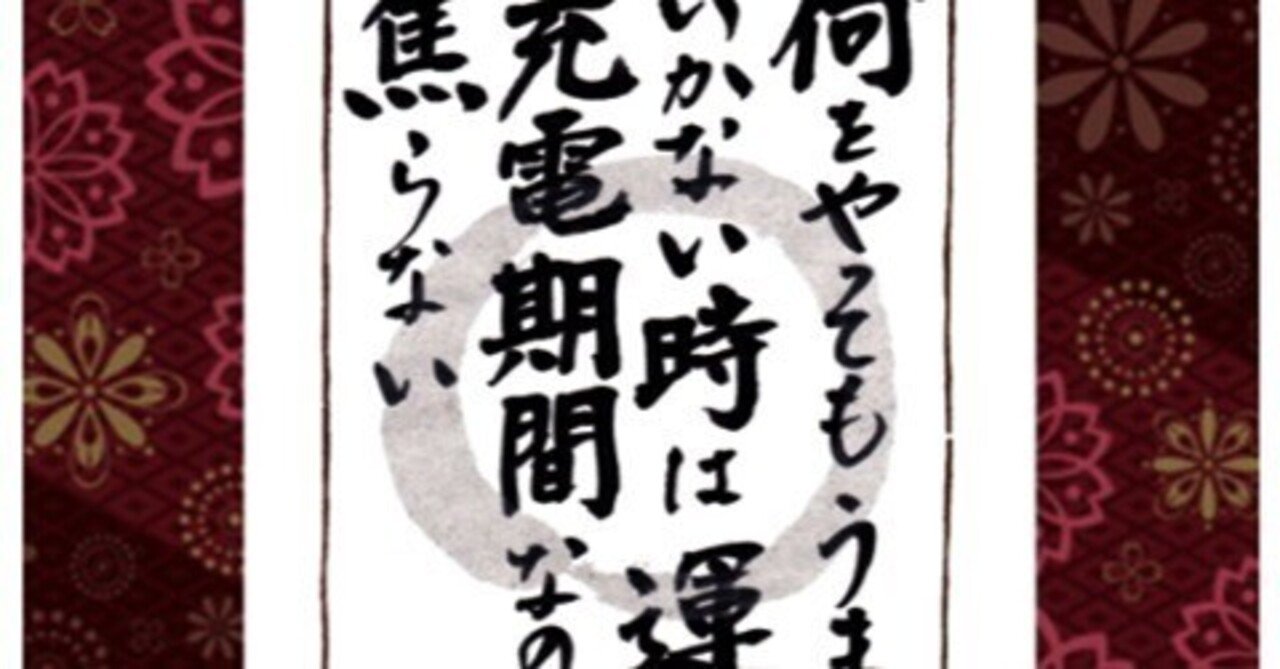 何をやってもうま
いかない時は運
充電期間なの
焦らない